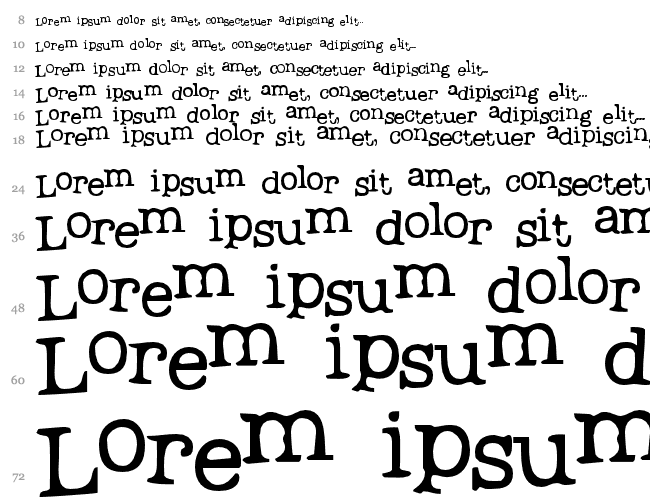 8 Lorem ipsum dolor sit amet, consectetuer adipiscing elit...
10 Lorem ipsum dolor sit amet, consectetuer adipiscing elit...
12 Lorem ipsum dolor sit amet, consectetuer adipiscing elit...
14 Lorem ipsum dolor sit amet, consectetuer adipiscing elit...
16 Lorem ipsum dolor sit amet, consectetuer adipiscing elit...
18 Lorem ipsum dolor sit amet, consectetuer adipiscin
24 Lorem ipsum dolor sit amet, consectetu
36 Lorem ipsum dolor sit am
48 Lorem ipsum dolor
60 Lorem ipsum d
72 Lorem ipsum